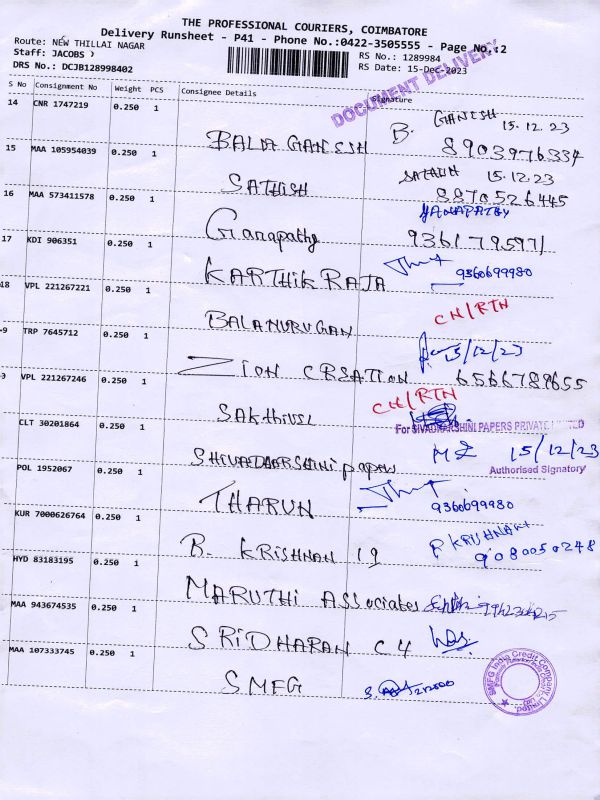 THE PROFESSIONAL COURIERS, COIMBATORE
Delivery Runsheet - P41 - Phone No.:0422-3505555 - Page No.:2
Route: NEW THILLAI NAGAR
Staff: JACOBS )
DRS No.: DCJB128998402
RS No.: 1289984
RS Date: 15-Dec-2023
DOCUMENT DELIVERY
S No Consignment No Weight PCS Consignee Details Signature
14 CNR 1747219 0.250 1 BALA GANESH B. GANESH 15.12.23
8903976334
15 MAA 105954039 0.250 1 SATHISH SATHISH 15.12.23
8870526445
16 MAA 573411578 0.250 1 Ganapathy GANAPATHY
9361795971
17 KDI 906351 0.250 1 KARTHIK RAJA 9360699980
18 VPL 221267221 0.250 1 BALAMURUGAN CN/RTN
9 TRP 7645712 0.250 1 ZION CREATION 15/12/23
6566789655
VPL 221267246 0.250 1 SAKTHIVEL CN/RTN
For SIVADHARSHINI PAPERS PRIVATE LIMITED
CLT 30201864 0.250 1 SHIVADHARSHINI papers 15/12/23
Authorised Signatory
POL 1952067 0.250 1 THARUN 9360699980
KUR 7000626764 0.250 1 B. KRISHNAN 19 KRISHNAN
9080050248
HYD 83183195 0.250 1 MARUTHI Associates
MAA 943674535 0.250 1 SRIDHARAN C4
MAA 107333745 0.250 1 SMFG
SMFG India Credit Company Limited